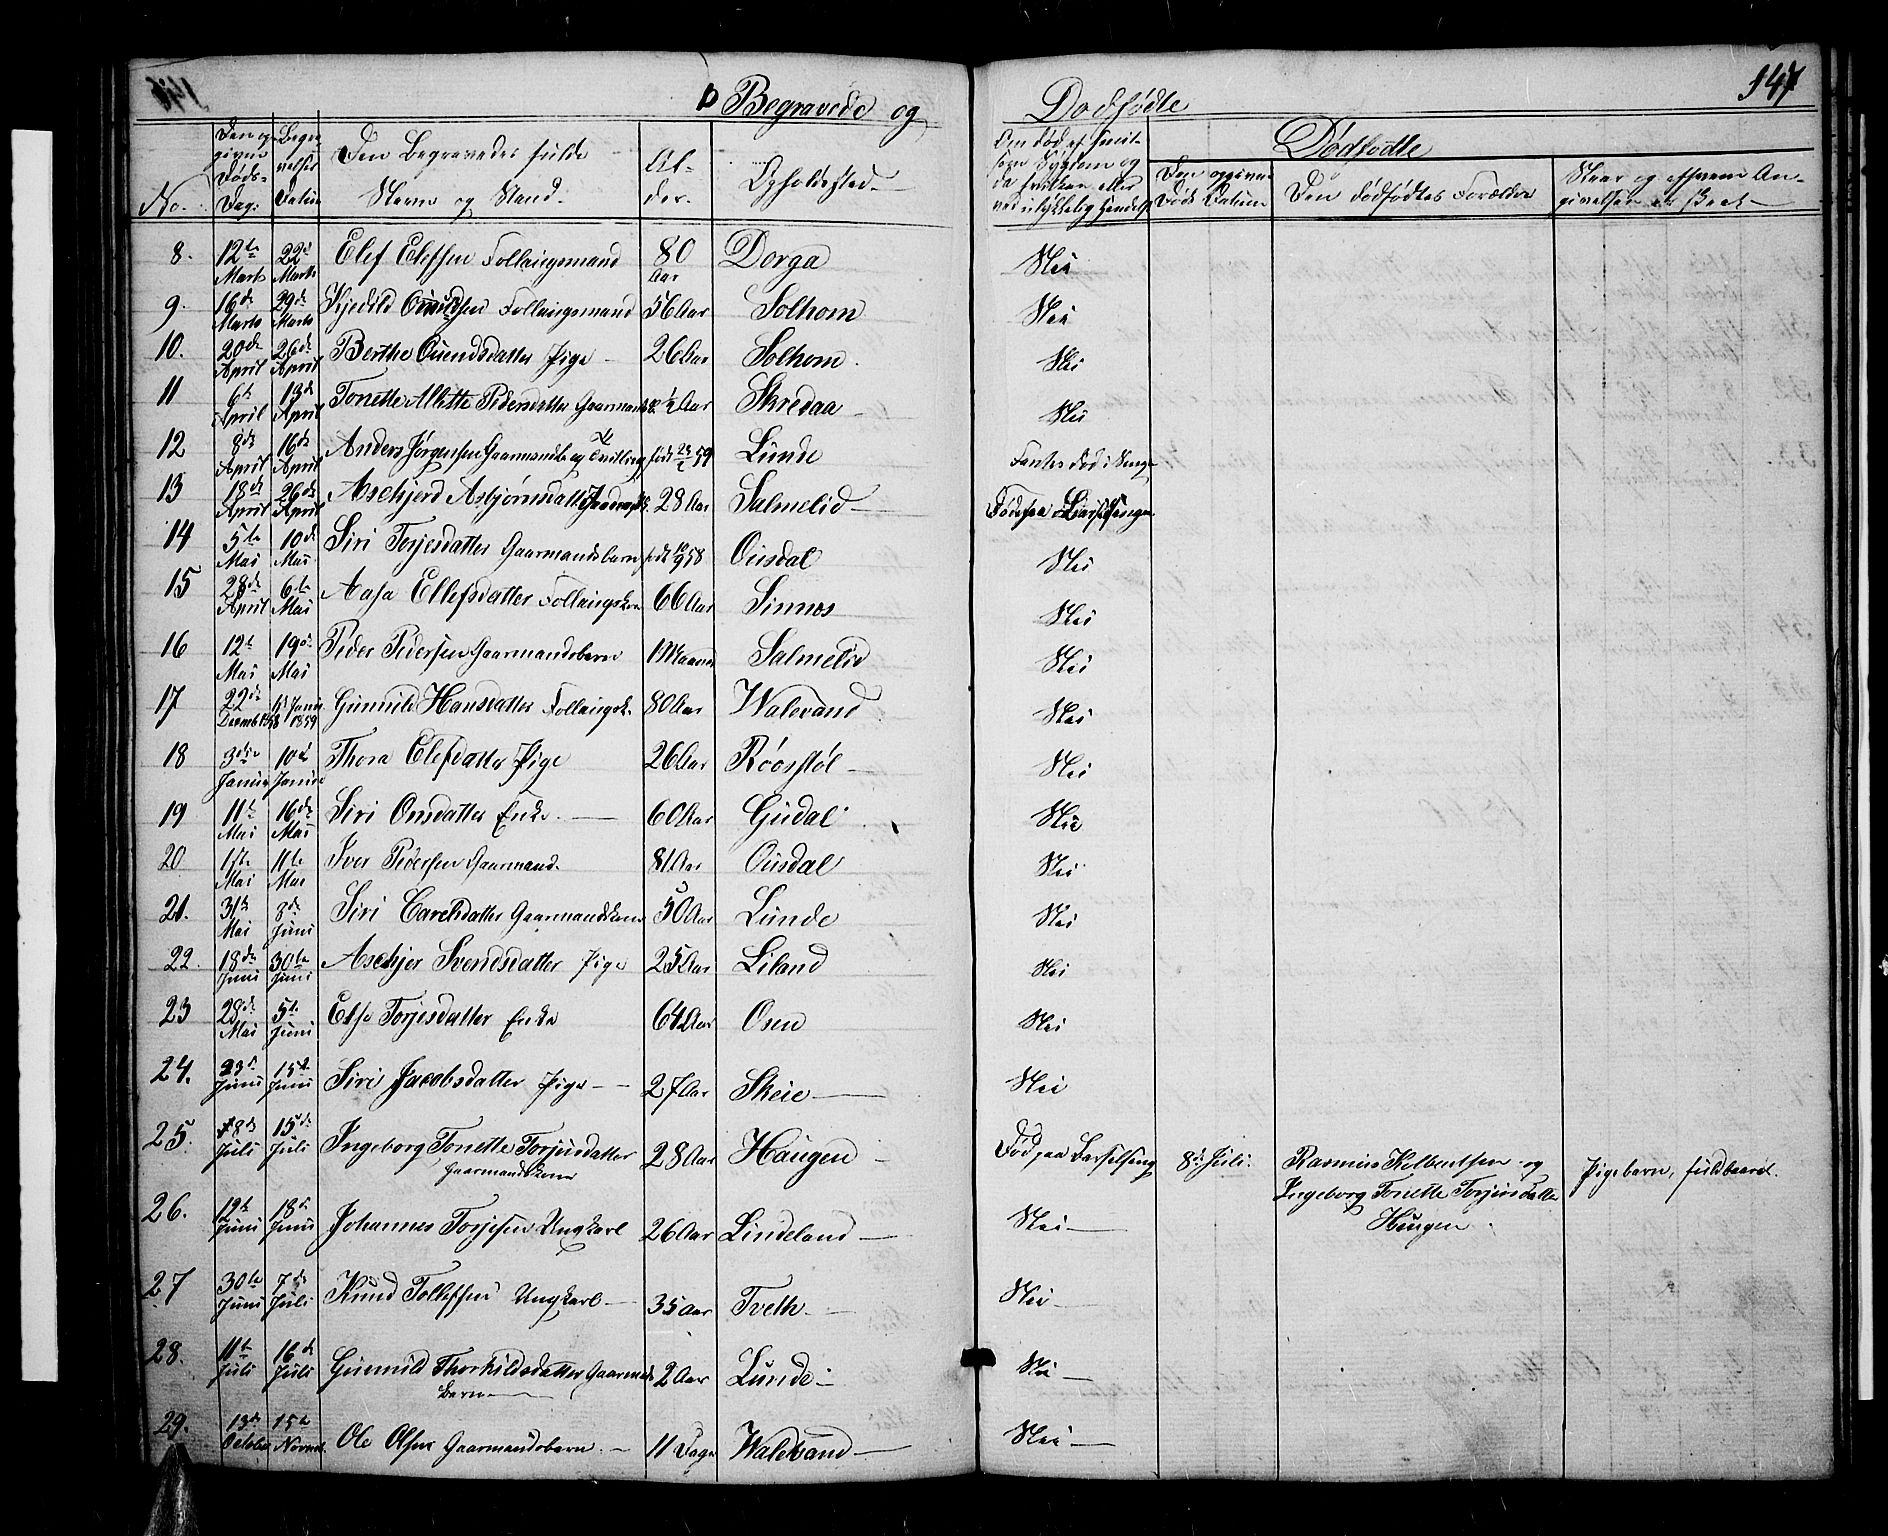 Begravede og Dødfødte 147
No. Den op- givne Døds- Dag: Begra- velses Datum Den Begravedes fulde Navne og Stand. Al- der. Opholdssted.
Dødfødte
Den opgivne Døds Datum Den dødfødtes Forældre
8. 12te Marts 22d Marts Elef Elefsen Follaugsmand 80 Aar Dorga Nei
9. 16de Marts 29de Marts Kjedild Follaugsmand 56 Aar Solhom Nei
10. 20de April 26de April Berthe Ouendsdatter Pige 26 Aar Solhom. Nei
11 6te April 13de April Tonette Alette Pedersdatter 1/2 Aar Skredaa Nei
12 8de April 16de April Anders Jørgensen Gaarmandsb og Tvilling født 23/2 59 Lunde
13 18de April 26de April Aschjerd Asbjørnsdatter 28 Aar Salmelid
14 5te Mai 10de Mai Siri Torjesdatter Gaarmandsbarn født 10/9 58 Ousdal Nei
15 28de April 6te Mai Aasa Ellefsdatter Follaugskone 66 Aar Sinnes Nei
16 12te Mai 19de Mai Peder Pedersen Gaarmandsbarn 1 Maaned Salmelid Nei
17 22de Decemb 1858 Janu 1859 Gunnild Hansdatter Follaugsk. 80 Aar Walevand Nei
18 3die Januar 10de Januar Thora Elefdatter Pige 26 Aar Røosstøl Nei
19 11te Mai 16de Mai Siri Onsdatter Enke. 60 Aar Gudal Nei
20 1ste Mai 11te Mai Iver Pedersen Gaarmand. 81 Aar Ousdal Nei
21. 31te Mai 8de Juni Siri Carelsdatter Gaarmandskone 50 Aar Lunde Nei
22. 18de Juni 30te Juni Aschjer Svendsdatter Pige 25 Aar Liland Nei
23 28de Mai 5te Juni Else Torjesdatter Enke 64 Aar Osen Nei
24. 23d Juni 15de Juni Siri Jacobsdatter Pige 27 Aar Skeie Nei
25. 8de Juli 15de Juli Ingeborg Tonette Torjusdatter Gaarmandskone 28 Aar Haugen Død paa Barselseng 8d Juli. Rasmus Kolbentsen og Ingeborg Tonette Torjusdatter Haugen Pigebarn, fuldbaaret.
26. 12te Juni 18de Juni Johannes Torjesen Ungkarl 26 Aar Lindeland Nei
27 30te Juni 7de Juli Knud Tollefsen Ungkarl 35 Aar Tveth. Nei
28. 11te Juli 16de Juli Gunnild Thorkildsdatter Gaarmands Barn 2 Aar Lunde Nei
29. 13de October 15de Novmb. Ole Olsen Gaarmandsbarn. 11 Dage Waldvand Nei